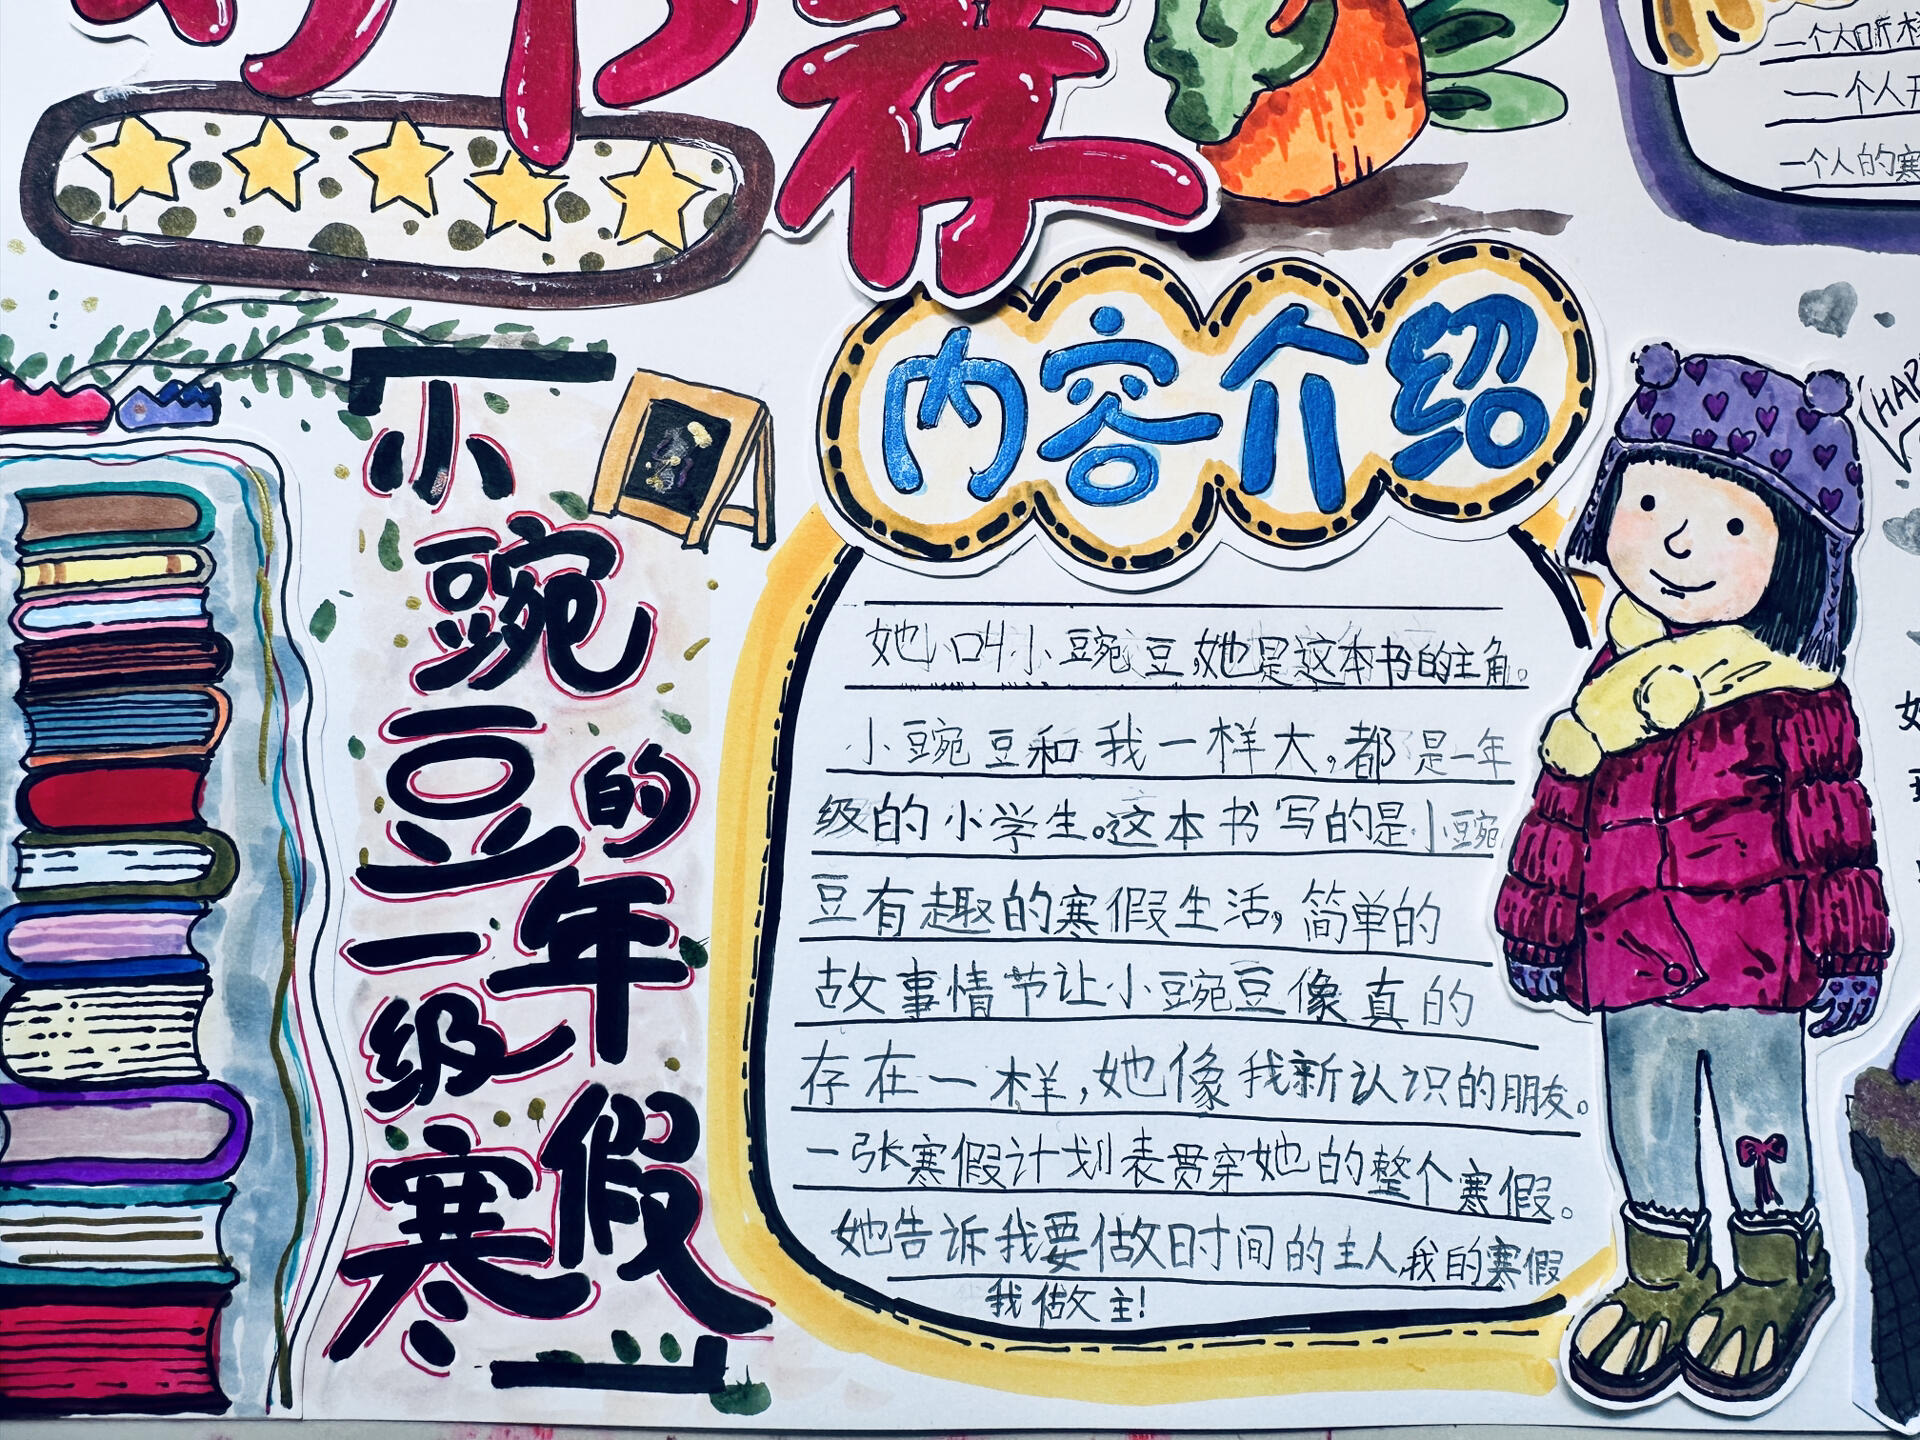 荐
一个人的寒
HAP
内容介绍
小豌豆的
一年级寒假
她叫小豌豆,她是这本书的主角。
小豌豆和我一样大。都是一年
级的小学生。这本书写的是小豌
豆有趣的寒假生活,简单的
故事情节让小豌豆像真的
存在一样,她像我新认识的朋友。
一张寒假计划表贯穿她的整个寒假。
她告诉我要做时间的主人,我的寒假
我做主!